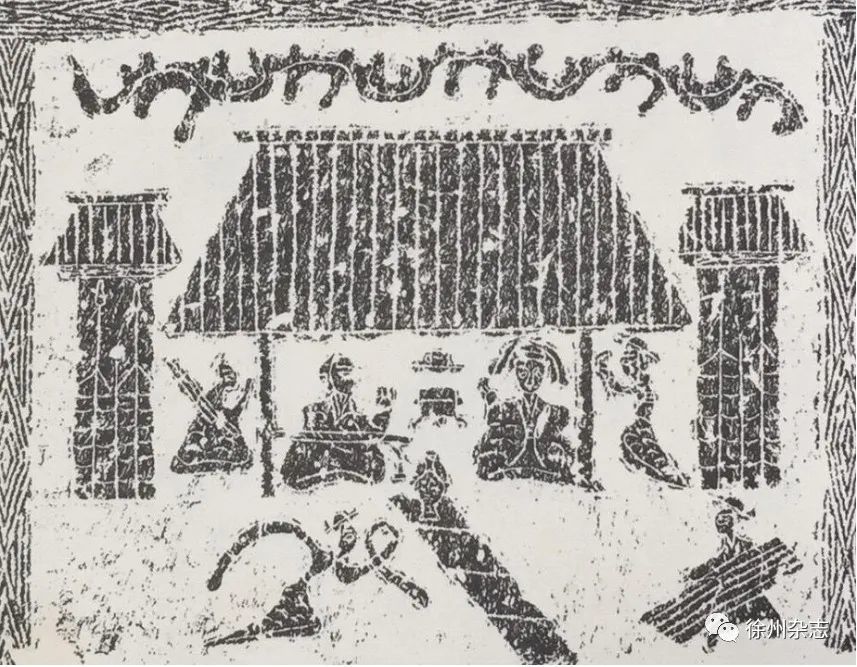 徐州杂志